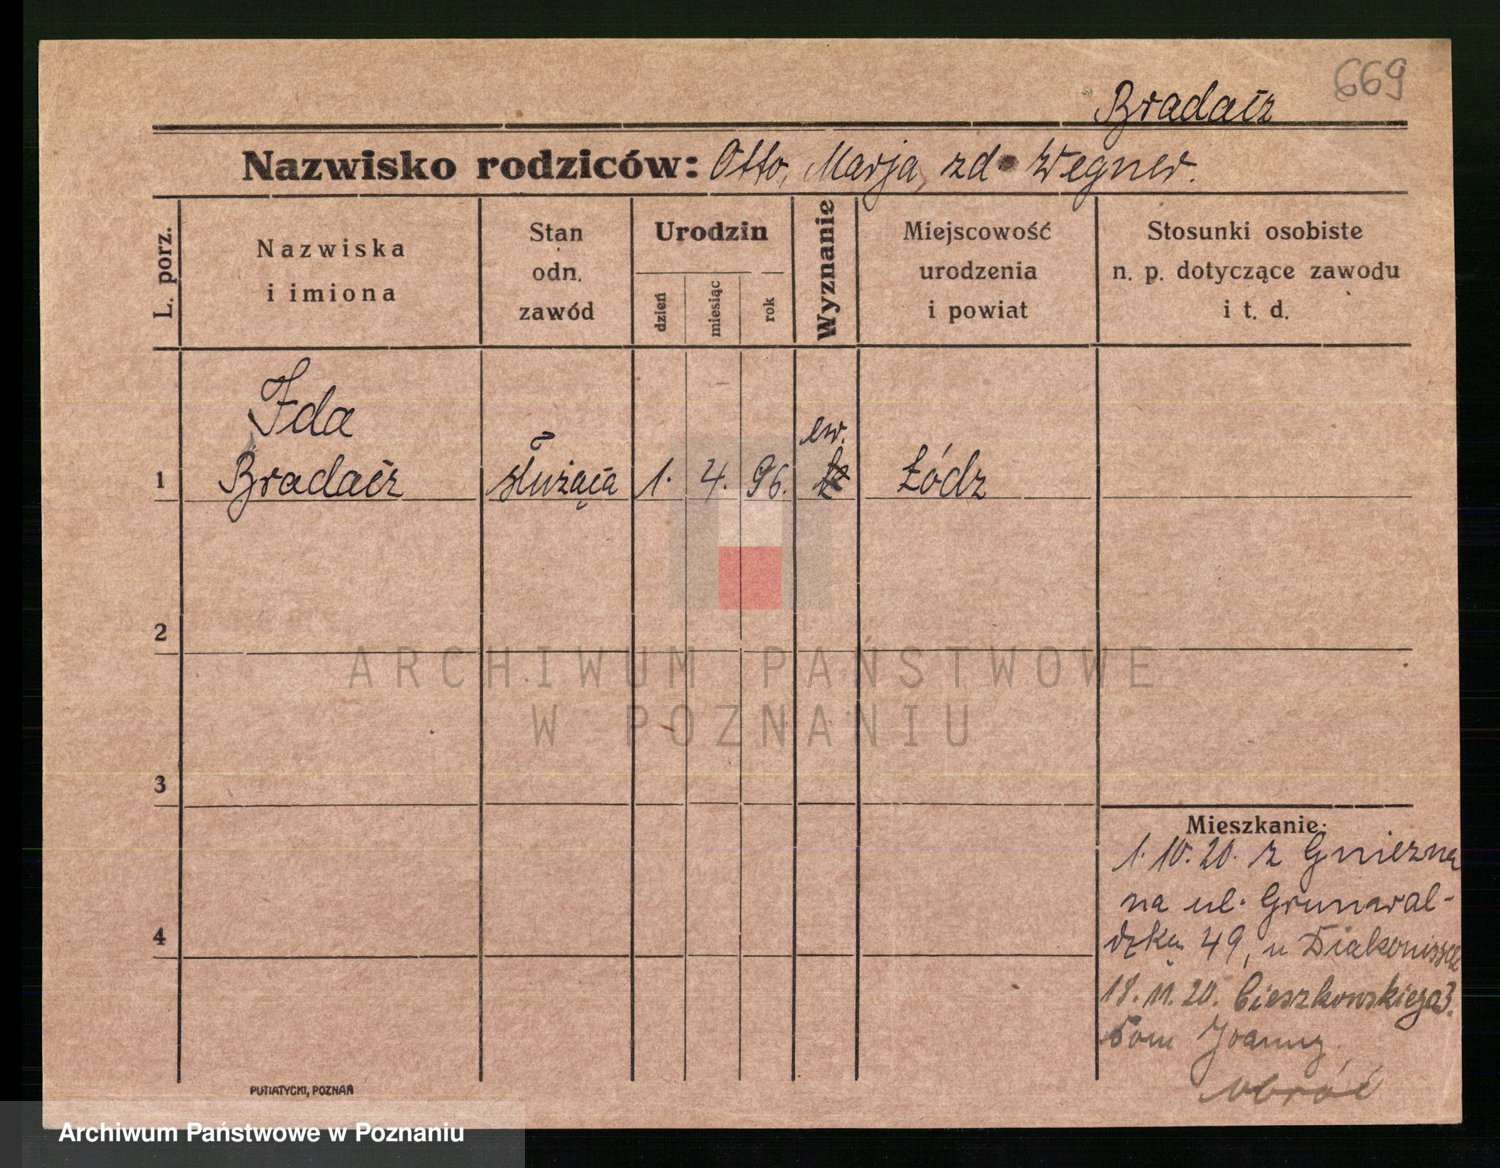 669
Bradacz
Nazwisko rodziców: Otto, Marja zd. Wegner.
L. porz.
Nazwiska
i imiona
Stan
odn.
zawód
Urodzin
dzień
miesiąc
rok
Wyznanie
Miejscowość
urodzenia
i powiat
Stosunki osobiste
n. p. dotyczące zawodu
i t. d.
Ida
ew.
1 Bradacz służąca 1. 4. 96. Łódz
2
ARCHIWUM PAŃSTWOWE
W POZNANIU
3
Mieszkanie:
1. 10. 20. z Gniezna
na ul. Grunwal-
dzką 49, u Diakonissek
4
18. 11. 20. Cieszkowskiego 3.
Dom Joanny.
obróć
PUTIATYCKI, POZNAŃ
Archiwum Państwowe w Poznaniu